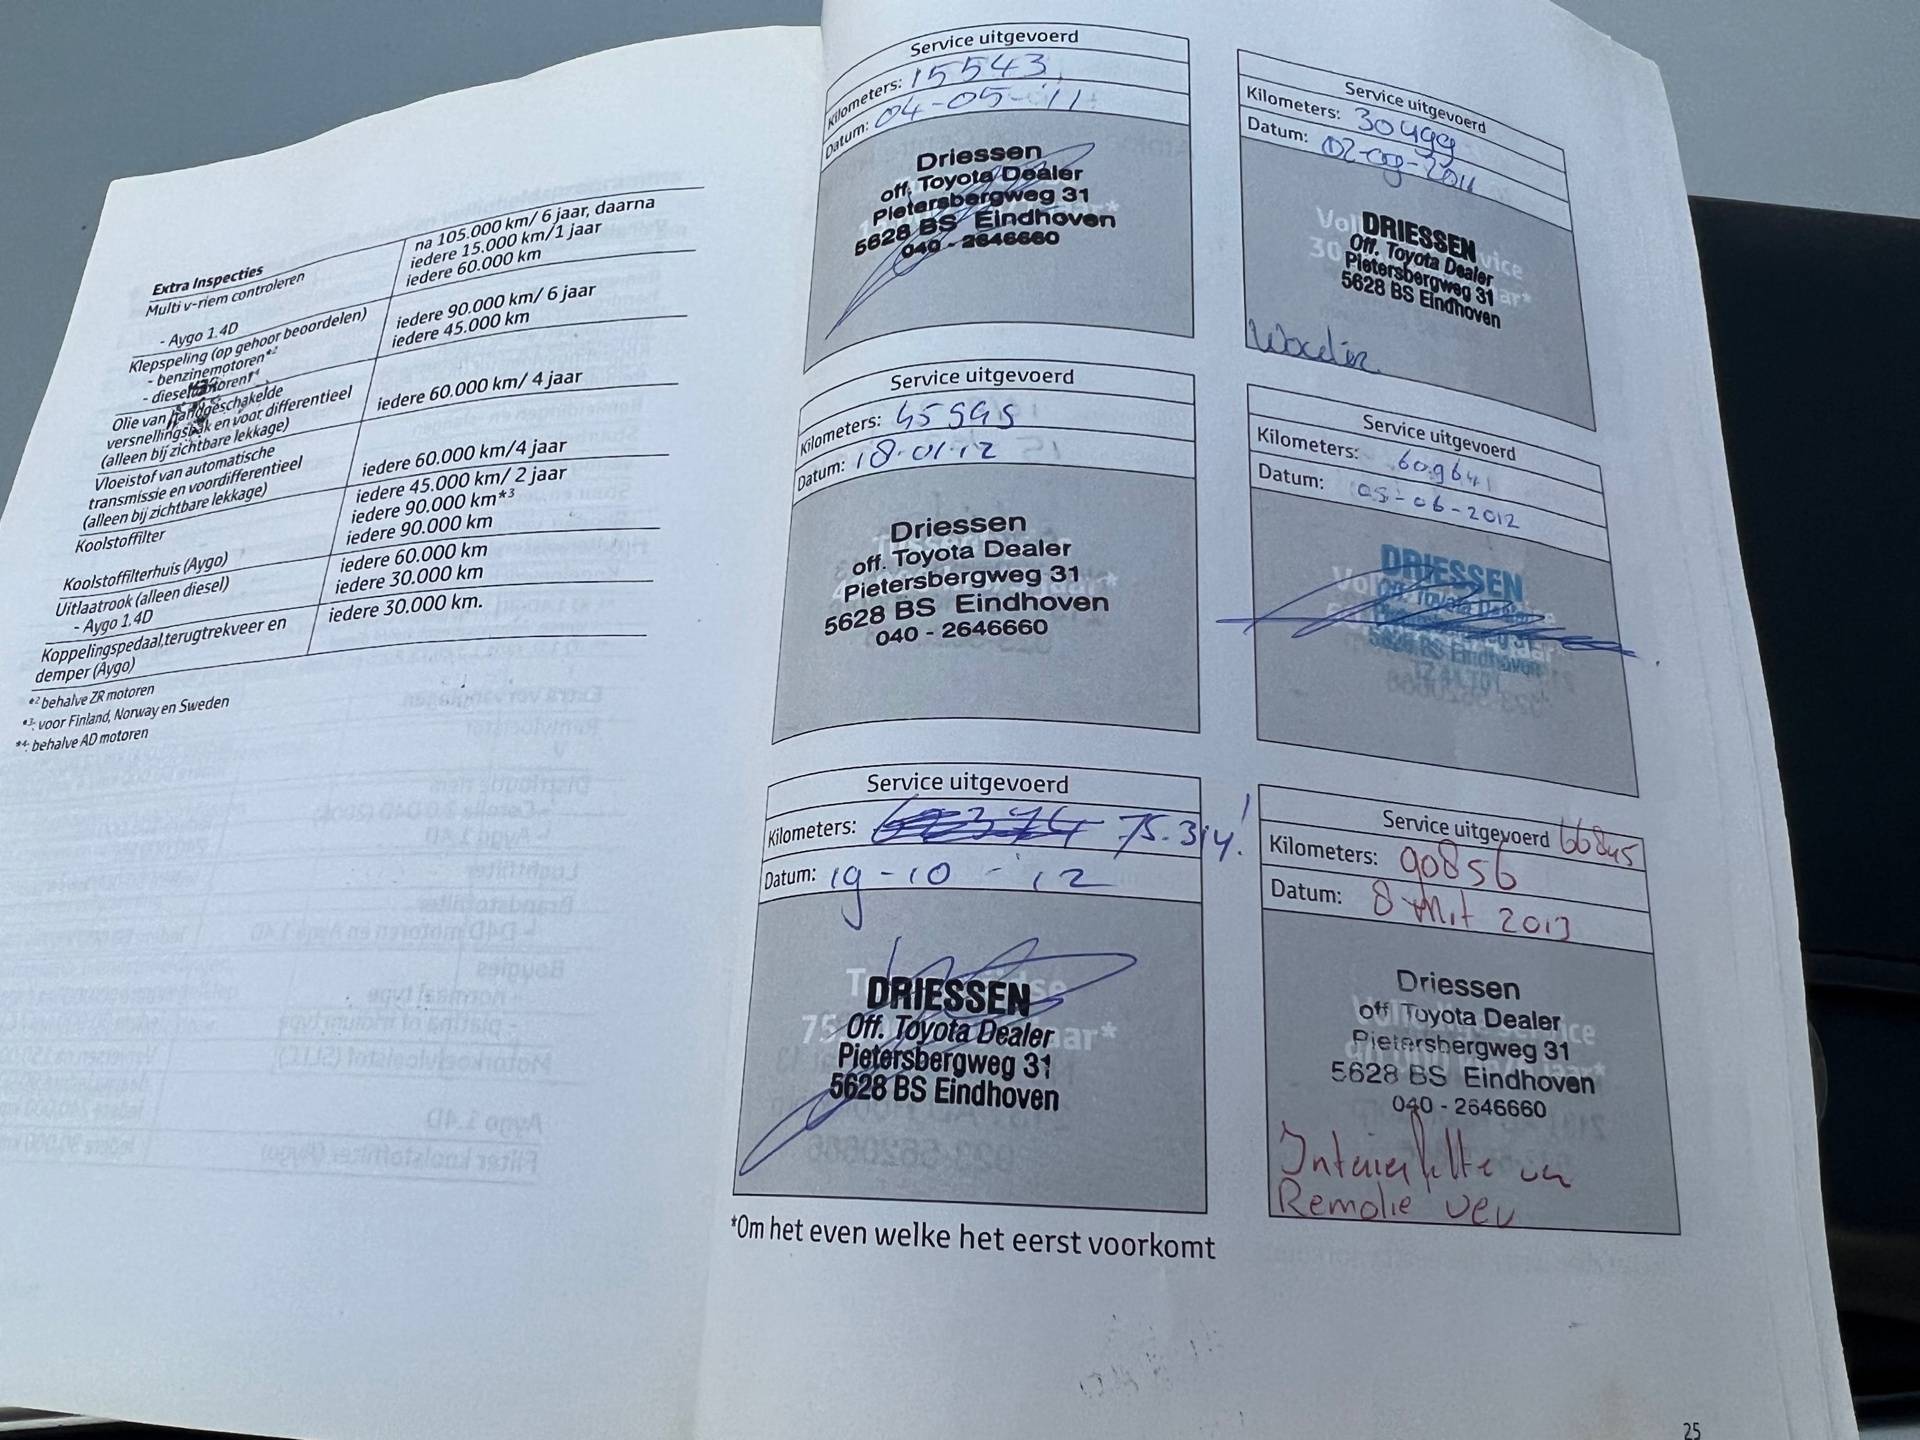 Extra Inspecties
Multi v-riem controleren
na 105.000 km/ 6 jaar, daarna
iedere 15.000 km/1 jaar
- Aygo 1.4D
iedere 60.000 km
Klepspeling (op gehoor beoordelen)
- benzinemotoren*2
iedere 90.000 km/ 6 jaar
- dieselmotoren*4
iedere 45.000 km
Olie van handgeschakelde
versnellingsbak en voor differentieel
(alleen bij zichtbare lekkage)
iedere 60.000 km/ 4 jaar
Vloeistof van automatische
transmissie en voordifferentieel
(alleen bij zichtbare lekkage)
iedere 60.000 km/4 jaar
Koolstoffilter
iedere 45.000 km/ 2 jaar
iedere 90.000 km*3
Koolstoffilterhuis (Aygo)
iedere 90.000 km
Uitlaatrook (alleen diesel)
iedere 60.000 km
- Aygo 1.4D
iedere 30.000 km
Koppelingspedaal,terugtrekveer en
demper (Aygo)
iedere 30.000 km.
*2 behalve ZR motoren
*3: voor Finland, Norway en Sweden
*4: behalve AD motoren
Service uitgevoerd
Kilometers: 15543
Datum: 04-05-'11
Driessen
off. Toyota Dealer
Pietersbergweg 31
5628 BS Eindhoven
040 - 2646660
Service uitgevoerd
Kilometers: 30499
Datum: 02-09-2011
DRIESSEN
Off. Toyota Dealer
Pietersbergweg 31
5628 BS Eindhoven
Service uitgevoerd
Kilometers: 45995
Datum: 18-01-12
Driessen
off. Toyota Dealer
Pietersbergweg 31
5628 BS Eindhoven
040 - 2646660
Service uitgevoerd
Kilometers: 60.964
Datum: 05-06-2012
DRIESSEN
Off. Toyota Dealer
Pietersbergweg 31
5628 BS Eindhoven
Service uitgevoerd
Kilometers: 75.314!
Datum: 19-10-12
DRIESSEN
Off. Toyota Dealer
Pietersbergweg 31
5628 BS Eindhoven
Service uitgevoerd 66845
Kilometers: 90856
Datum: 8 Mrt 2013
Driessen
off Toyota Dealer
Pietersbergweg 31
5628 BS Eindhoven
040 - 2646660
*Om het even welke het eerst voorkomt
25